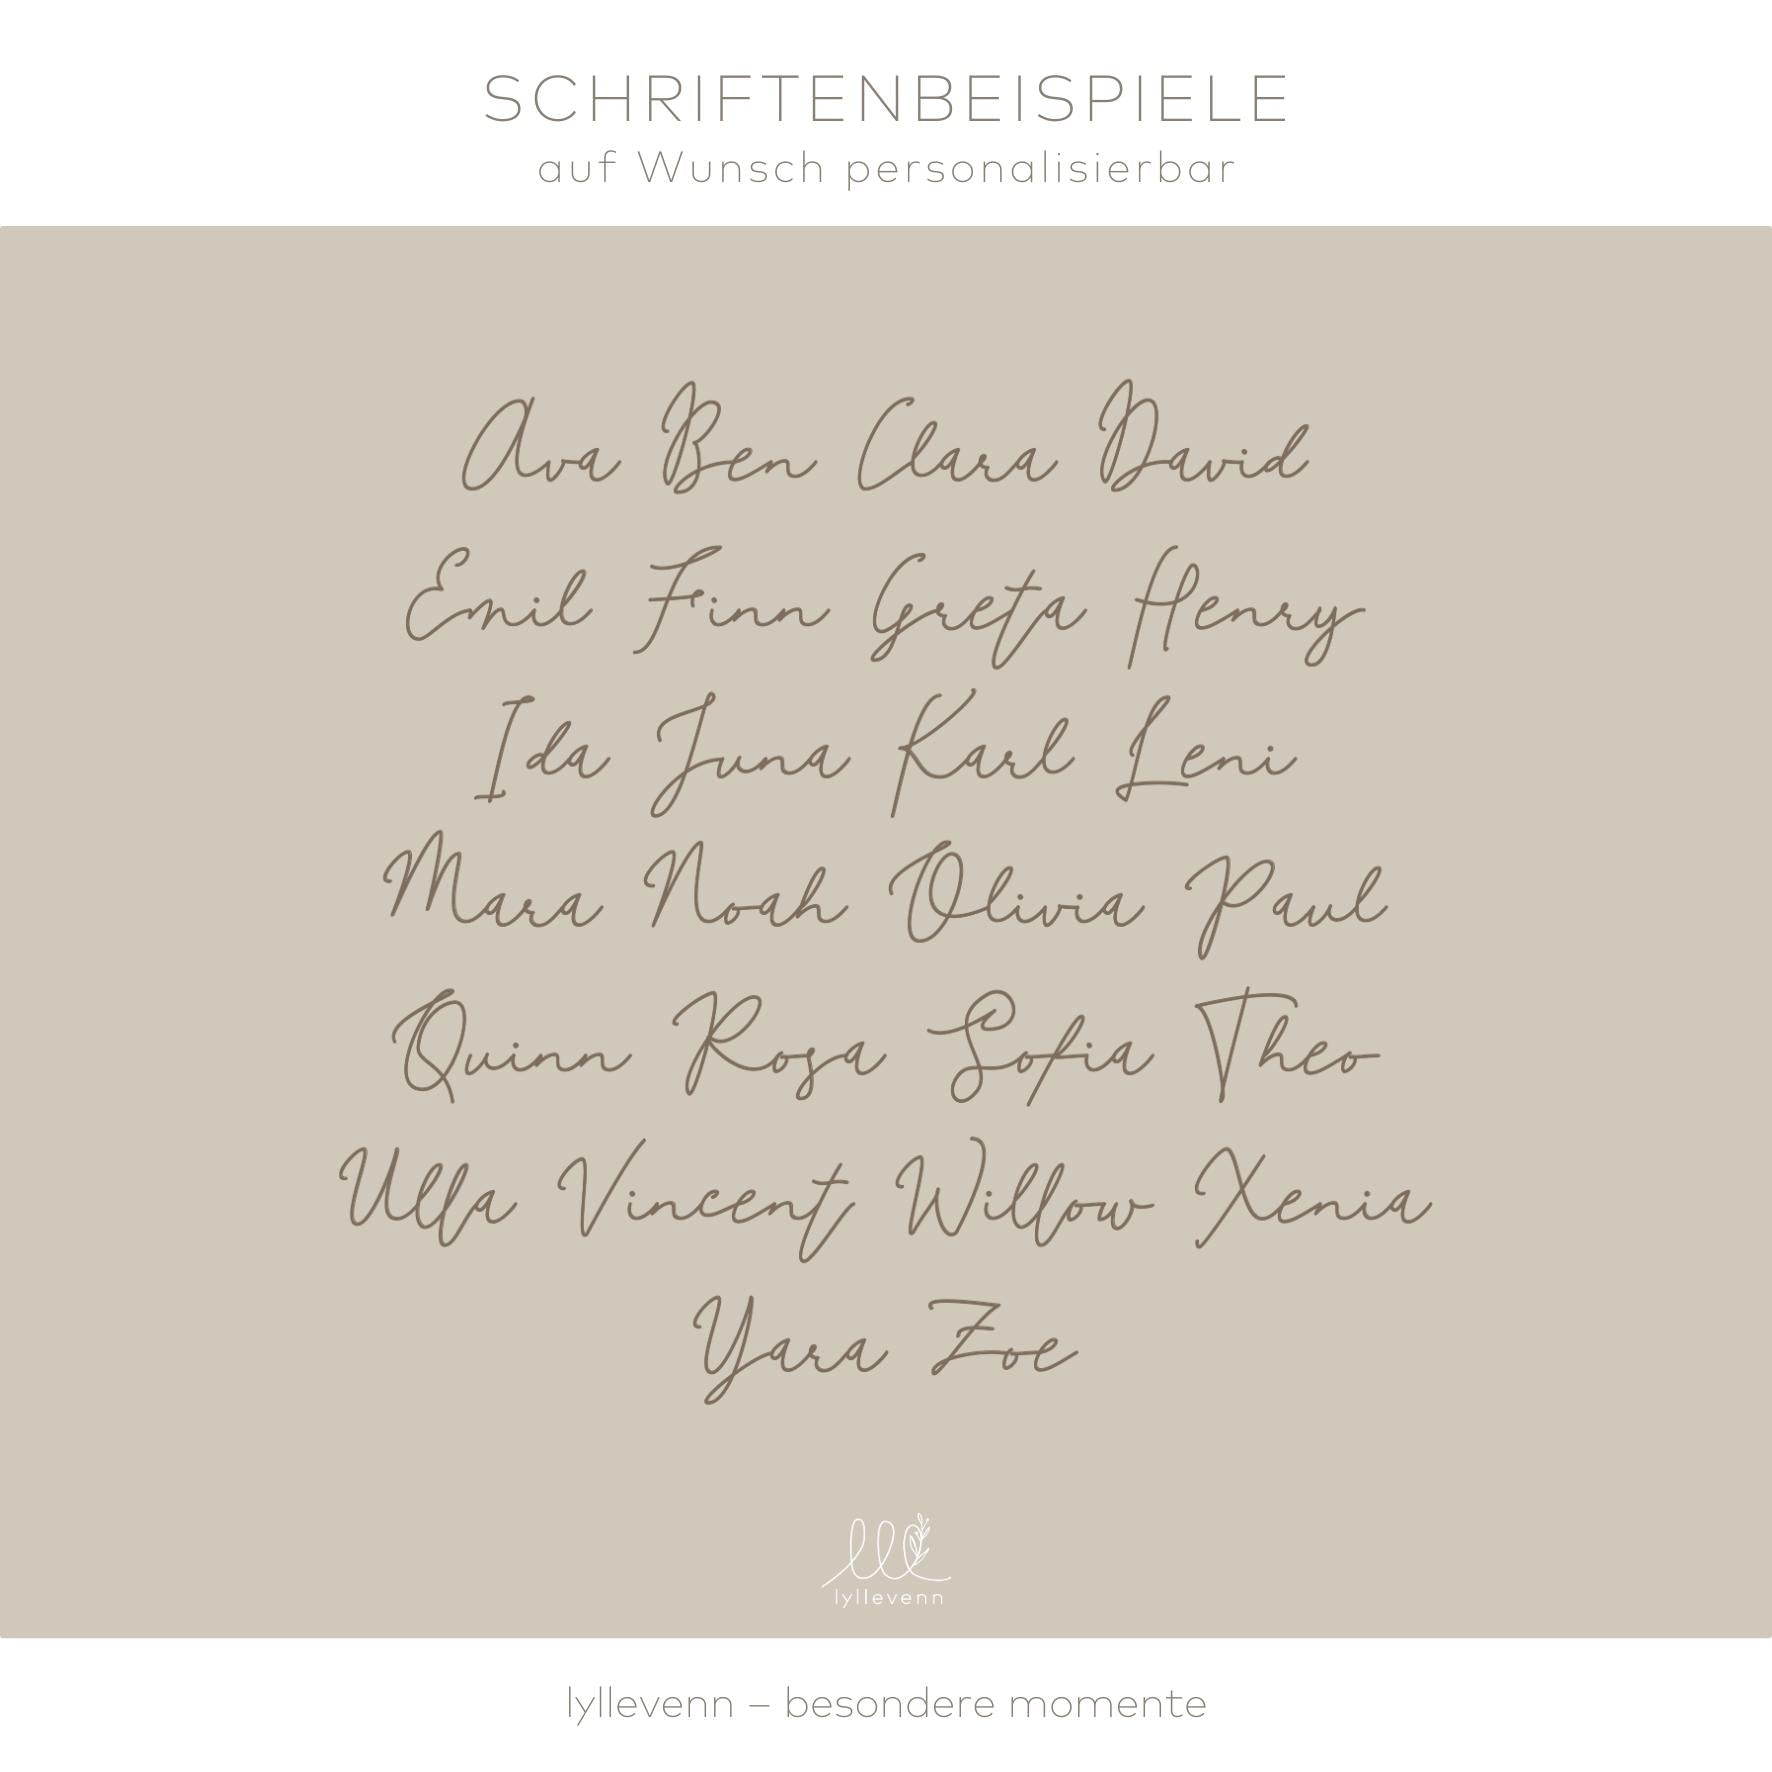 SCHRIFTENBEISPIELE
auf Wunsch personalisierbar
Ava Ben Clara David
Emil Finn Greta Henry
Ida Juna Karl Leni
Mara Noah Olivia Paul
Quinn Rosa Sofia Theo
Ulla Vincent Willow Xenia
Yara Zoe
lyllevenn
lyllevenn – besondere momente